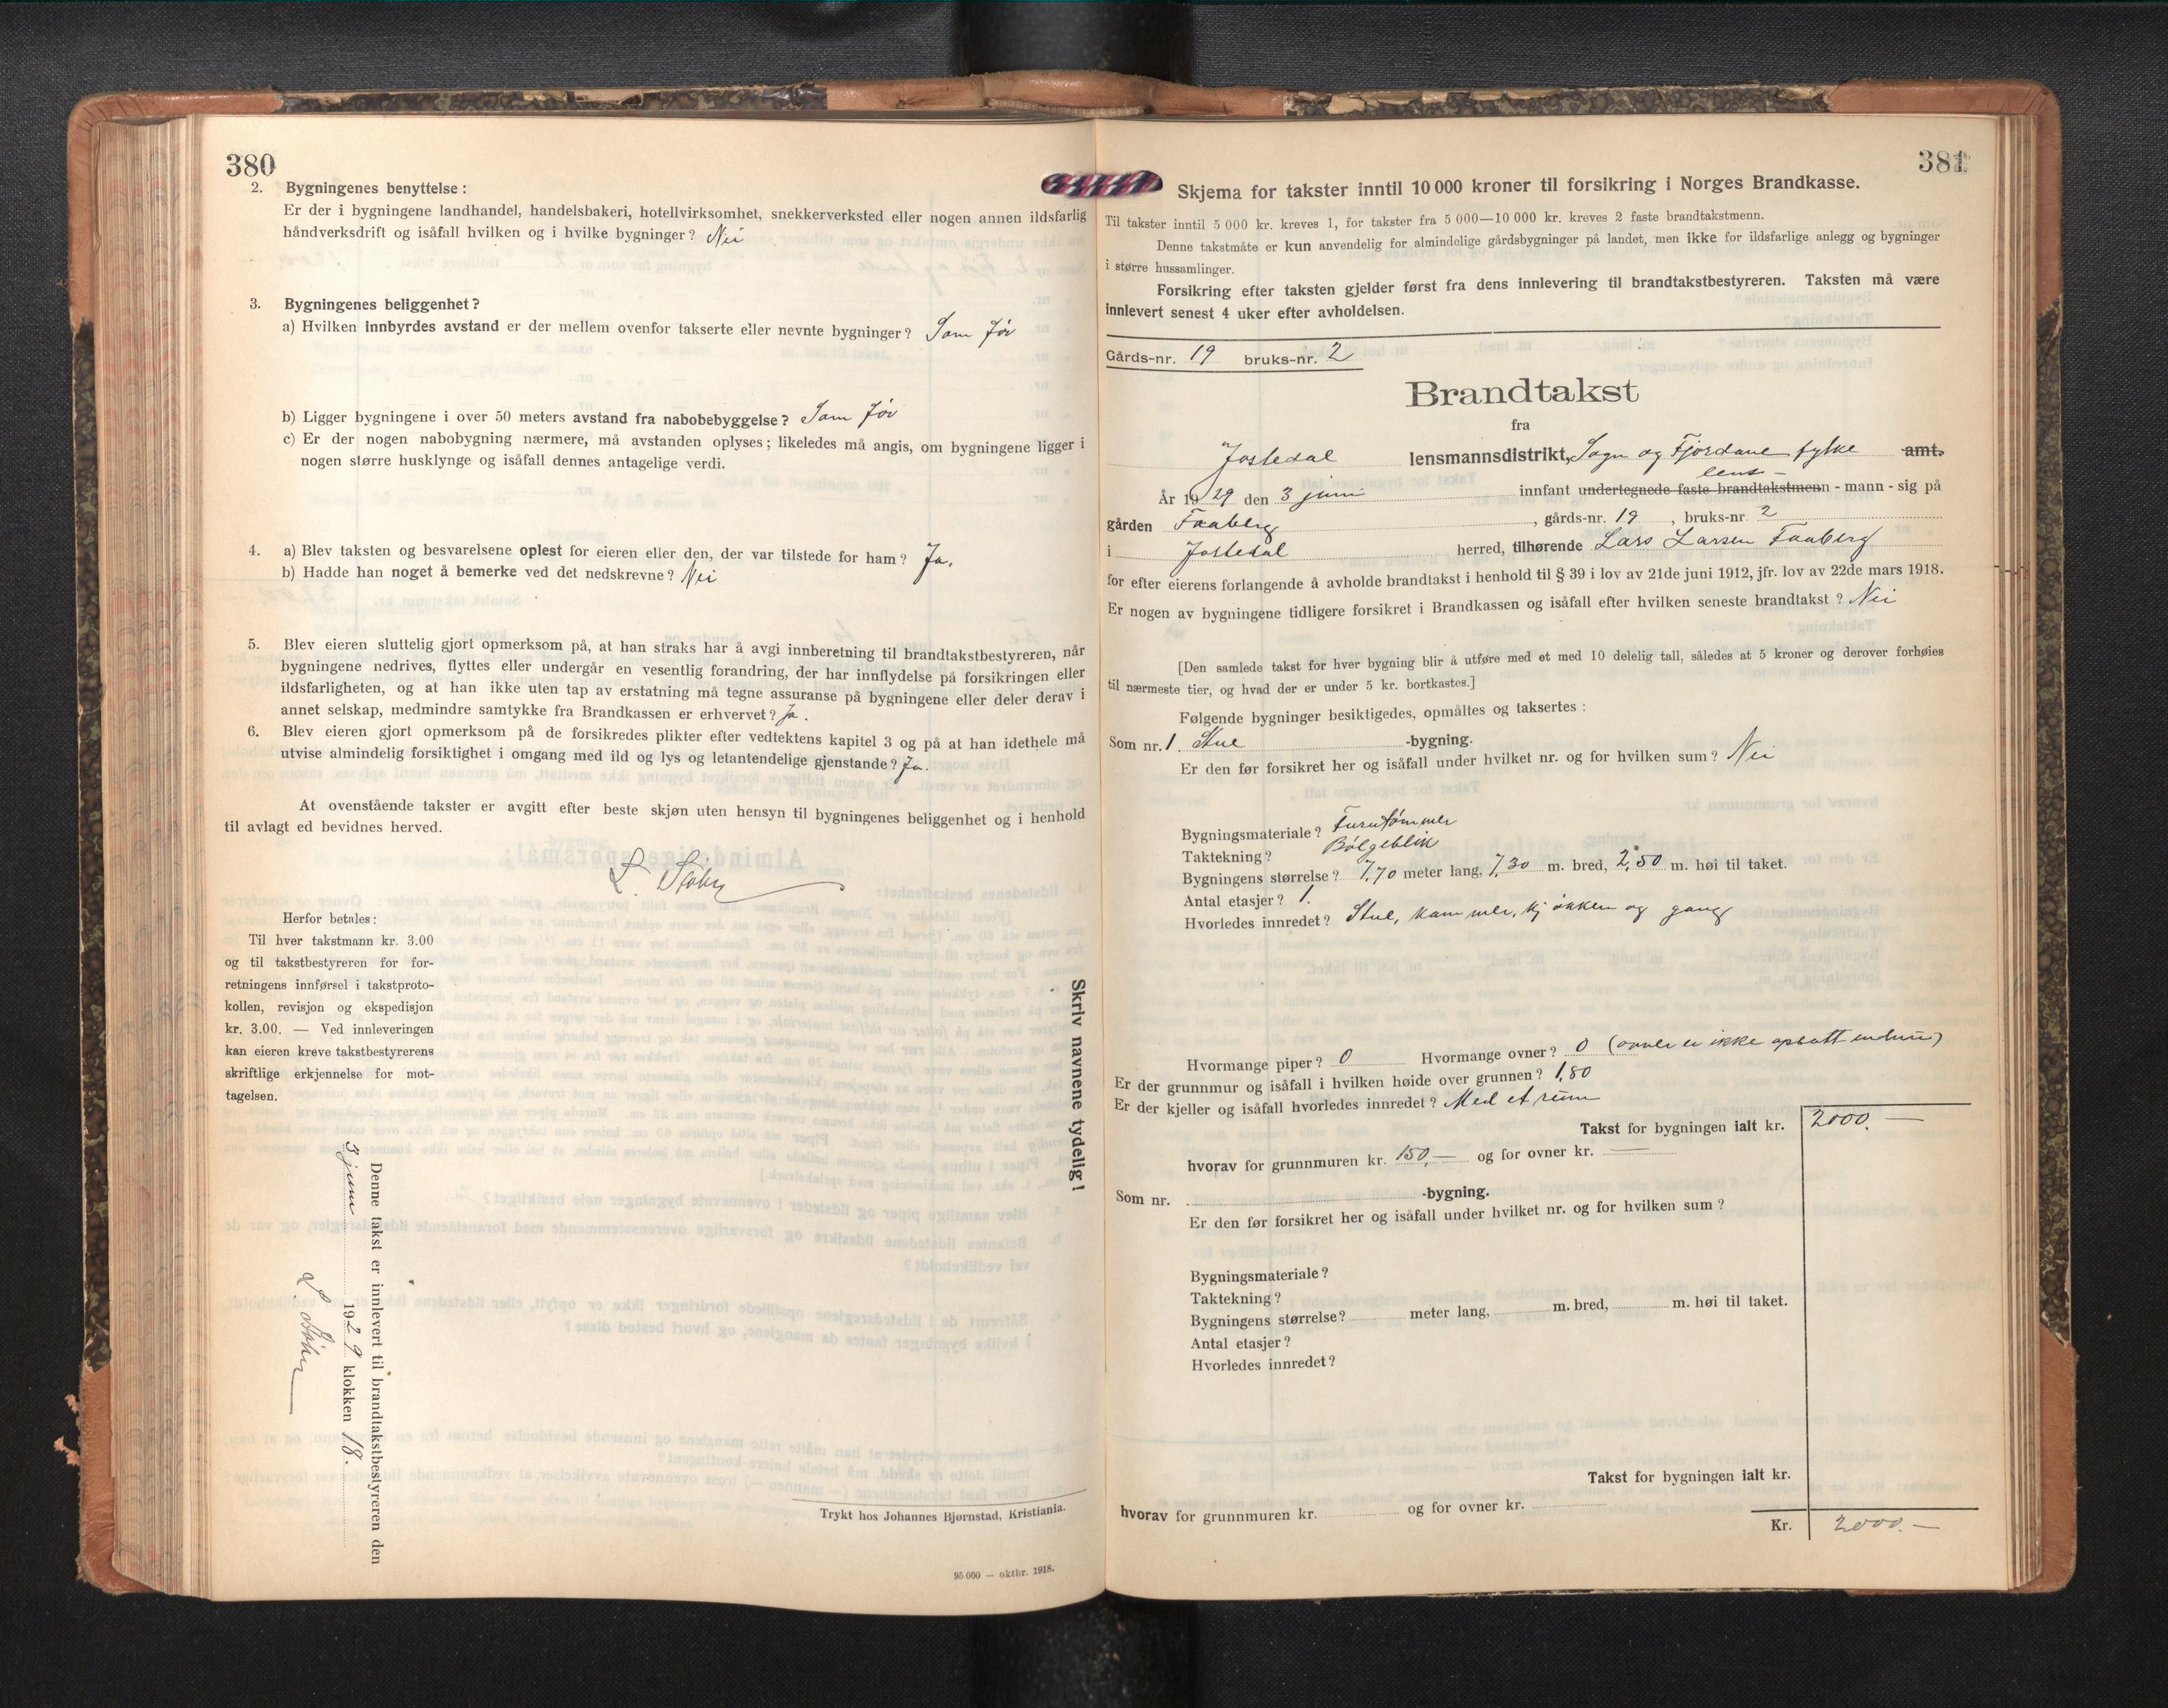 380
2. Bygningenes benyttelse:
Er der i bygningene landhandel, handelsbakeri, hotellvirksomhet, snekkerverksted eller nogen annen ildsfarlig
håndverksdrift og isåfall hvilken og i hvilke bygninger? Nei
3. Bygningenes beliggenhet?
a) Hvilken innbyrdes avstand er der mellem ovenfor takserte eller nevnte bygninger? Som før
b) Ligger bygningene i over 50 meters avstand fra nabobebyggelse? Som før
c) Er der nogen nabobygning nærmere, må avstanden oplyses; likeledes må angis, om bygningene ligger i
nogen større husklynge og isåfall dennes antagelige verdi.
4. a) Blev taksten og besvarelsene oplest for eieren eller den, der var tilstede for ham? Ja.
b) Hadde han noget å bemerke ved det nedskrevne? Nei
5. Blev eieren sluttelig gjort opmerksom på, at han straks har å avgi innberetning til brandtakstbestyreren, når
bygningene nedrives, flyttes eller undergår en vesentlig forandring, der har innflydelse på forsikringen eller
ildsfarligheten, og at han ikke uten tap av erstatning må tegne assuranse på bygningene eller deler derav i
annet selskap, medmindre samtykke fra Brandkassen er erhvervet? Ja.
6. Blev eieren gjort opmerksom på de forsikredes plikter efter vedtektens kapitel 3 og på at han idethele må
utvise almindelig forsiktighet i omgang med ild og lys og letantendelige gjenstande? Ja.
At ovenstående takster er avgitt efter beste skjøn uten hensyn til bygningenes beliggenhet og i henhold
til avlagt ed bevidnes herved.
L.
Herfor betales:
Til hver takstmann kr. 3.00
og til takstbestyreren for for-
retningens innførsel i takstproto-
kollen, revisjon og ekspedisjon
kr. 3.00. — Ved innleveringen
kan eieren kreve takstbestyrerens
skriftlige erkjennelse for mot-
tagelsen.
Denne takst er innlevert til brandtakstbestyreren den
3 juni 1929 klokken 18.
L.
Skriv navnene tydelig!
Trykt hos Johannes Bjørnstad, Kristiania.
95 000 — oktbr. 1918.
381
Skjema for takster inntil 10 000 kroner til forsikring i Norges Brandkasse.
Til takster inntil 5 000 kr. kreves 1, for takster fra 5 000—10 000 kr. kreves 2 faste brandtakstmenn.
Denne takstmåte er kun anvendelig for almindelige gårdsbygninger på landet, men ikke for ildsfarlige anlegg og bygninger
i større hussamlinger.
Forsikring efter taksten gjelder først fra dens innlevering til brandtakstbestyreren. Taksten må være
innlevert senest 4 uker efter avholdelsen.
Gårds-nr. 19 bruks-nr. 2
Brandtakst
fra
Jostedal lensmannsdistrikt, Sogn og Fjordane fylke amt.
lens-
År 1929 den 3 juni innfant undertegnede faste brandtakstmenn - mann - sig på
gården Faaberg, gårds-nr. 19, bruks-nr. 2
i Jostedal herred, tilhørende Lars Larsen Faaberg
for efter eierens forlangende å avholde brandtakst i henhold til § 39 i lov av 21de juni 1912, jfr. lov av 22de mars 1918.
Er nogen av bygningene tidligere forsikret i Brandkassen og isåfall efter hvilken seneste brandtakst? Nei
[Den samlede takst for hver bygning blir å utføre med et med 10 delelig tall, således at 5 kroner og derover forhøies
til nærmeste tier, og hvad der er under 5 kr. bortkastes.]
Følgende bygninger besiktigedes, opmåltes og taksertes:
Som nr. 1. Stue -bygning.
Er den før forsikret her og isåfall under hvilket nr. og for hvilken sum? Nei
Bygningsmateriale? Furutømmer
Taktekning? Bølgeblik
Bygningens størrelse? 7,70 meter lang, 7,30 m. bred, 2,50 m. høi til taket.
Antal etasjer? 1.
Hvorledes innredet? Stue, kammer, kjøkken og gang
Hvormange piper? 0 Hvormange ovner? 0 (ovner er ikke opsatt enduu)
Er der grunnmur og isåfall i hvilken høide over grunnen? 1,80
Er der kjeller og isåfall hvorledes innredet? Med et rum
Takst for bygningen ialt kr. 2000.—
hvorav for grunnmuren kr. 150,— og for ovner kr. —
Som nr. -bygning.
Er den før forsikret her og isåfall under hvilket nr. og for hvilken sum?
Bygningsmateriale?
Taktekning?
Bygningens størrelse? meter lang, m. bred, m. høi til taket.
Antal etasjer?
Hvorledes innredet?
Takst for bygningen ialt kr.
hvorav for grunnmuren kr. og for ovner kr.
Kr. 2000.—